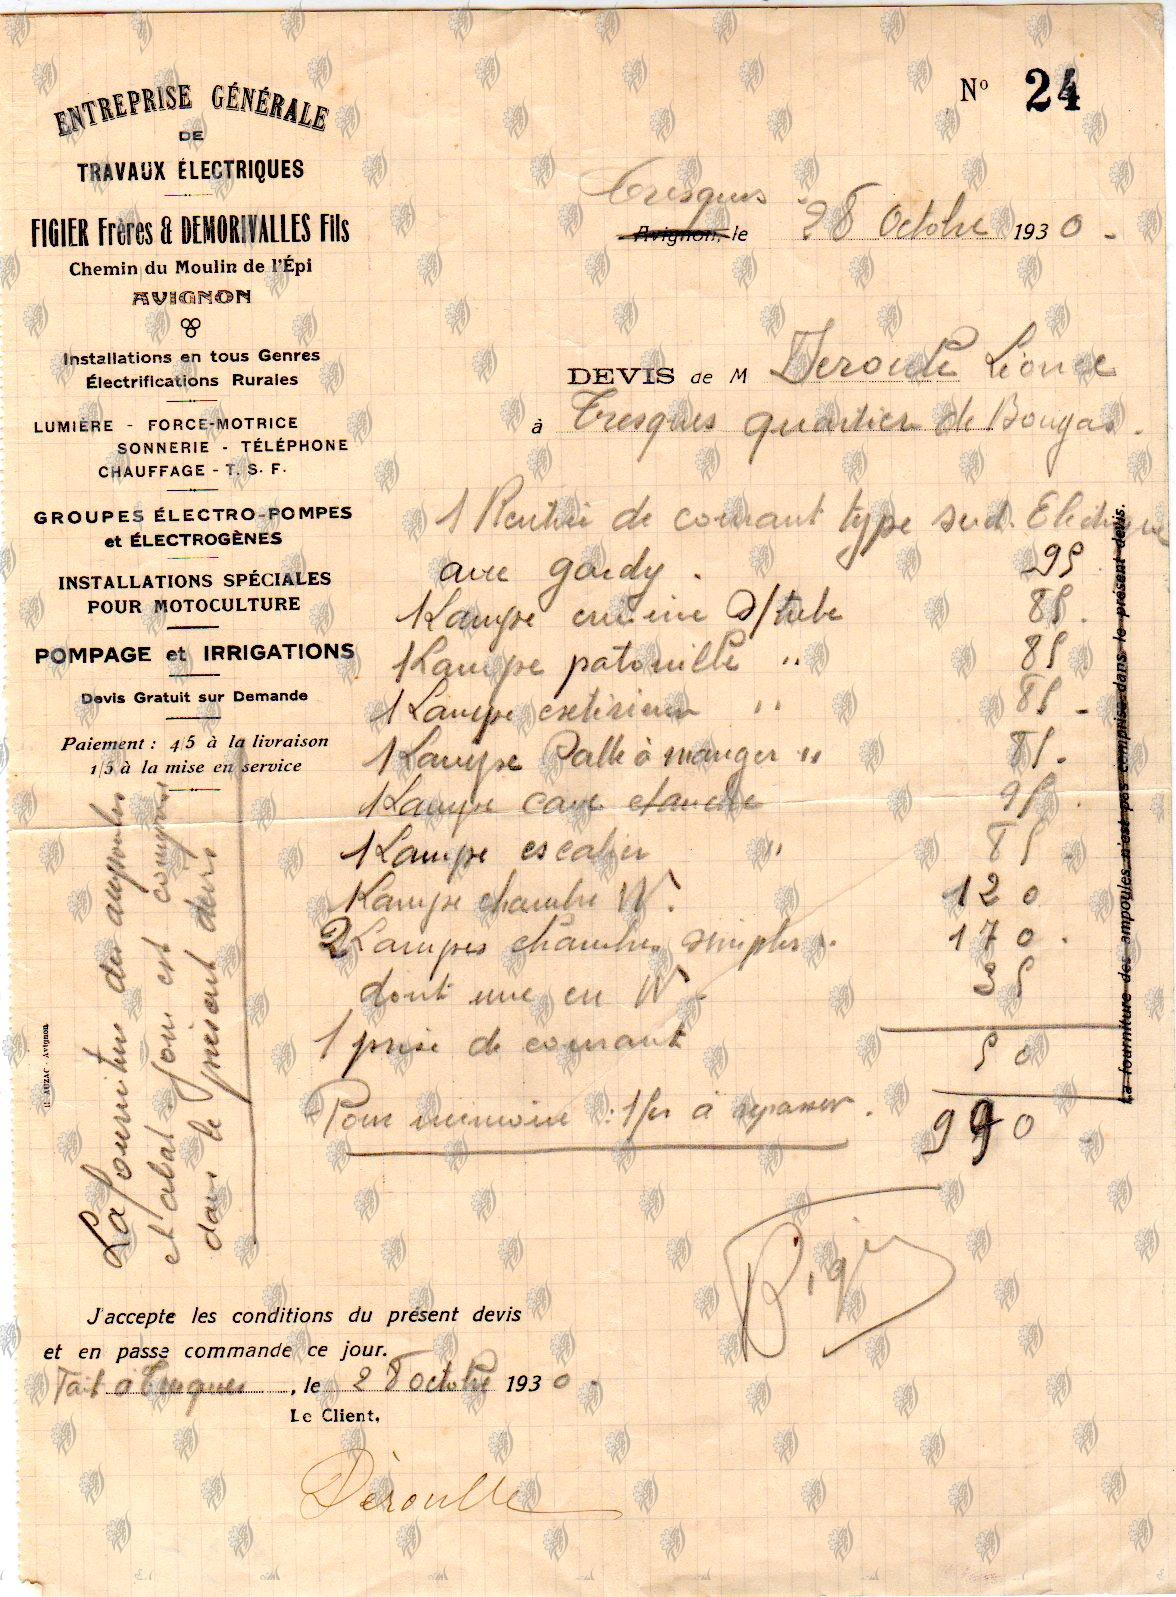 ENTREPRISE GÉNÉRALE
DE
TRAVAUX ÉLECTRIQUES
FIGIER Frères & DEMORIVALLES Fils
Chemin du Moulin de l'Épi
AVIGNON
Installations en tous Genres
Électrifications Rurales
LUMIÈRE - FORCE-MOTRICE
SONNERIE - TÉLÉPHONE
CHAUFFAGE - T. S. F.
GROUPES ÉLECTRO-POMPES
et ÉLECTROGÈNES
INSTALLATIONS SPÉCIALES
POUR MOTOCULTURE
POMPAGE et IRRIGATIONS
Devis Gratuit sur Demande
Paiement : 4/5 à la livraison
1/5 à la mise en service
No 24
Tresques
Avignon, le 28 Octobre 1930.
DEVIS de M Deroulle Léonce
à Tresques quartier de Bougas.
1 Rentrée de courant type Sud. Electrique
avec gardy. 95
1 Lampe cuisine s/tube 85.
1 Lampe patouille " 85
1 Lampe extérieur " 85.
1 Lampe Salle à manger " 85.
1 Lampe cave etanche 95.
1 Lampe escalier " 85.
1 Lampe chambre W. 120
2 Lampes chambres simples ". 170.
dont une en W. 35
1 prise de courant 50
Pour mémoire : 1 fer à repasser. 990
La fourniture des ampoules n'est pas comprise dans le présent devis.
La fourniture des ampoules
et abat-jour est comprise
dans le présent devis
Figier
J'accepte les conditions du présent devis
et en passe commande ce jour.
Fait à Tresques, le 28 octobre 1930.
Le Client,
Déroulle